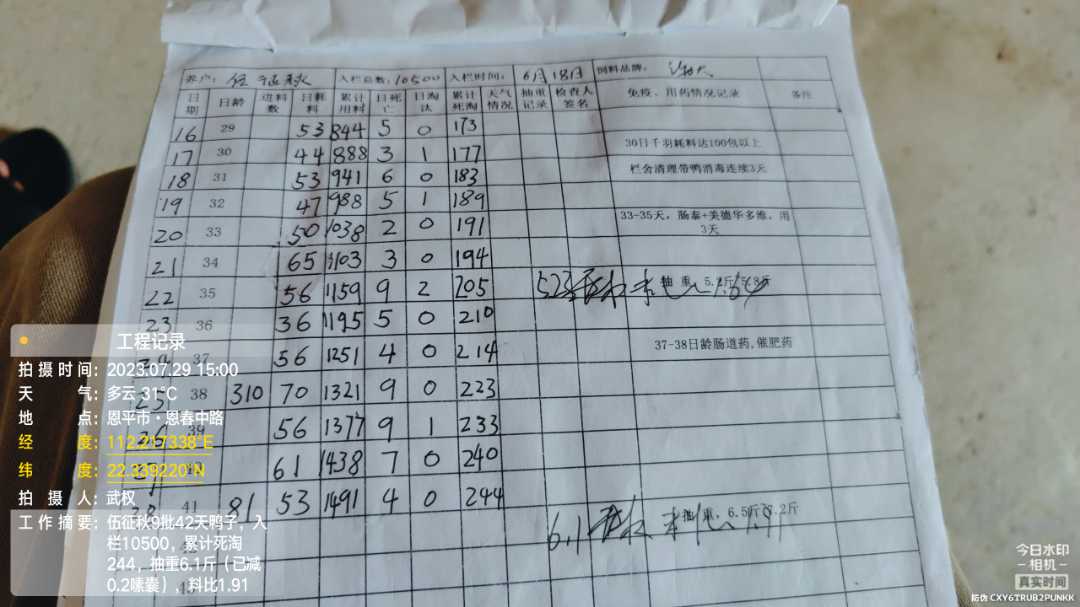 养户: 伍征秋 入栏总数: 10500 入栏时间: 6月18日 饲料品牌:
日期 日龄 进料数 日耗料 累计用料 日死亡 日淘汰 累计死淘 天气情况 抽重记录 检查人签名 免疫、用药情况记录 备注
16 29 53 844 5 0 173
30日千羽耗料达100包以上
17 30 44 888 3 1 177
18 31 53 941 6 0 183 栏舍清理带鸭消毒连续3天
19 32 47 988 5 1 189
33-35天,肠泰+美德华多维,用3天
20 33 50 1038 2 0 191
21 34 65 1103 3 0 194
22 35 56 1159 9 2 205 抽重:
23 36 36 1195 5 0 210
37 56 1251 4 0 214 37-38日龄肠道药,催肥药
25 38 310 70 1321 9 0 223
26 39 56 1377 9 1 233
61 1438 7 0 240
28 41 81 53 1491 4 0 244
6.1 抽重: 6.5斤 7.2斤
工程记录
拍摄时间: 2023.07.29 15:00
天气: 多云 31°C
地点: 恩平市·恩春中路
经度: 112.217338°E
纬度: 22.339220°N
拍摄人: 武权
工作摘要: 伍征秋9批42天鸭子,入
栏10500,累计死淘
244,抽重6.1斤(已减
0.2嗉囊),料比1.91
今日水印
相机
真实时间
防伪 CXY6TRUB2PUNKK